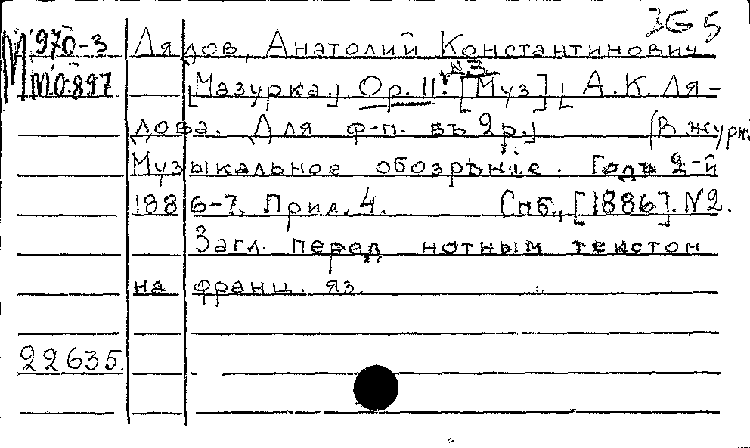 3G5
М 970-3 Лядов, Анатолий Константинович
МО.897 [Мазурка.] Ор. 11. №3 [Муз], [А.К. Ля-
дова. Для ф-п. въ 2 р.] (В журн.
Музыкальное обозрѣніе. Годъ 2-й
1886-7. Прил. 4. Спб., [1886]. №2.
Загл. перед нотным текстом
на франц. яз.
22635